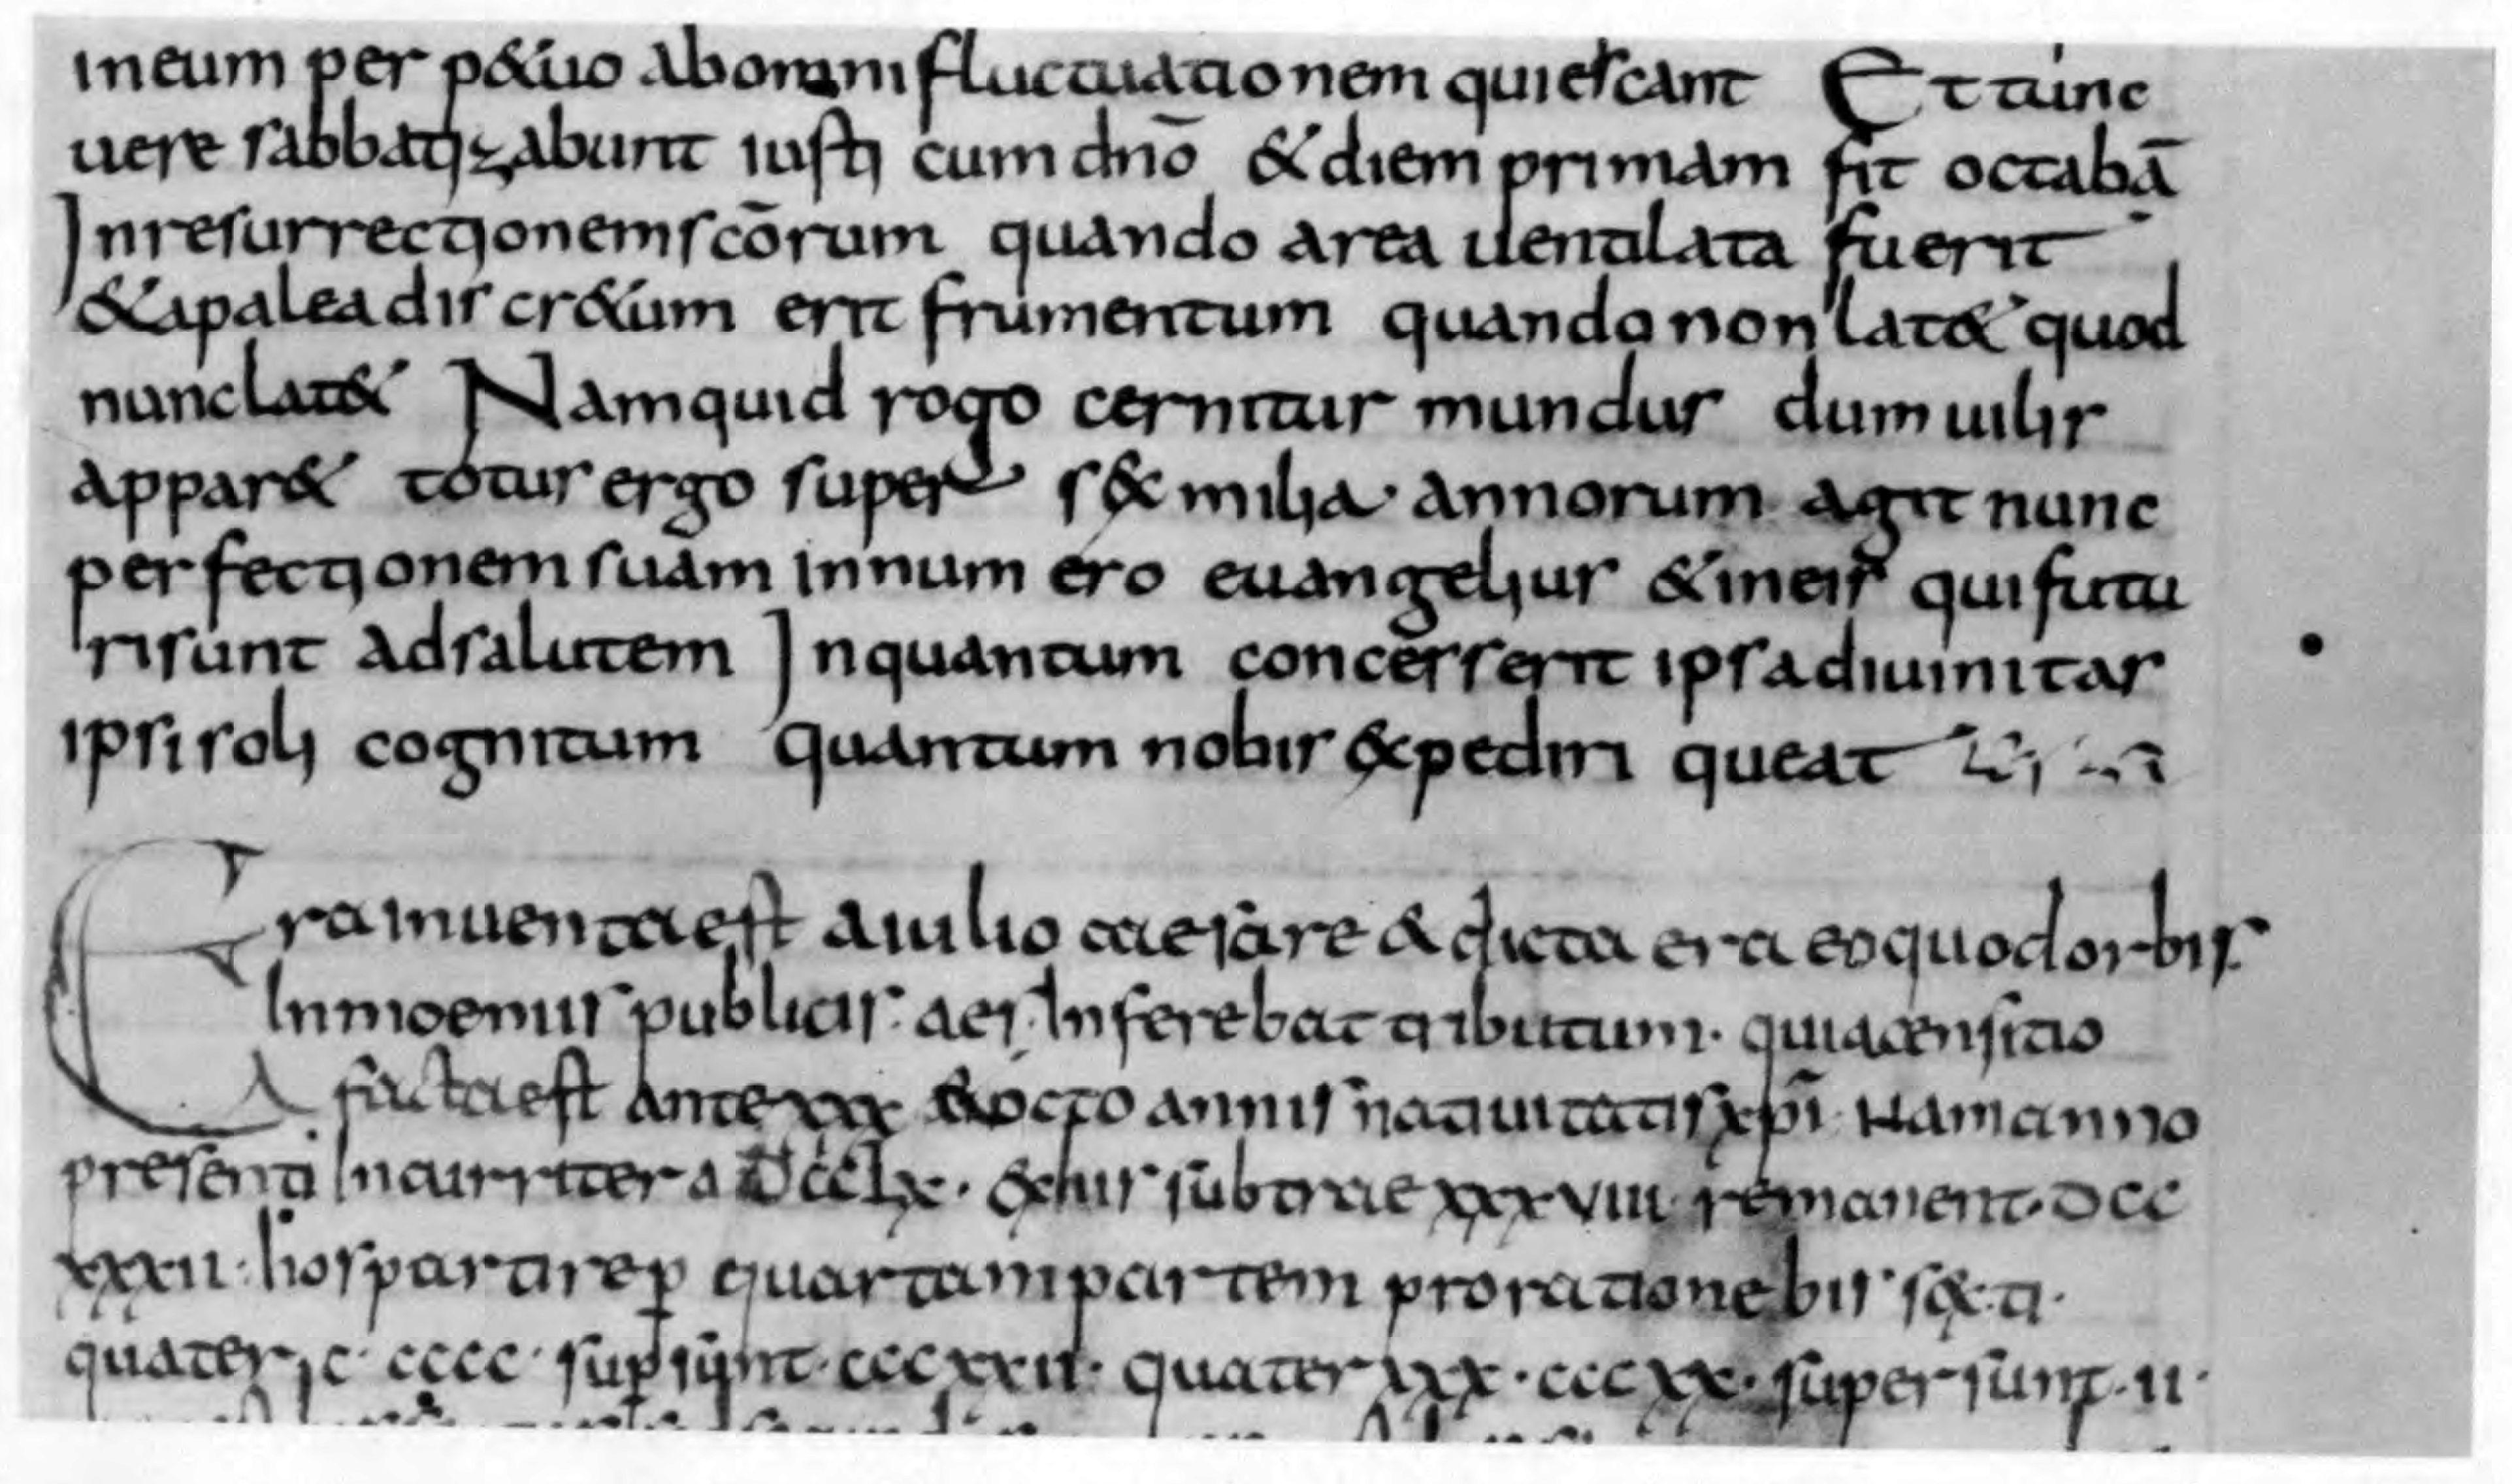 ineum per p&uo abomni fluctuationem quiescant Et tunc
uere sabbatizabunt iusti cum dnō & diem primam fit octabā
Inresurrectionem scōrum quando area uentilata fuerit
& apalea discr&um erit frumentum quando non lat& quod
nunc lat& Nam quid rogo cernitur mundus dum uilis
appar& totus ergo super s& milia · annorum agit nunc
perfectionem suam in num ero euangelius & in eis qui futu
ri sunt ad salutem In quantum concesserit ipsa diuinitas
ipsi soli cognitum quantum nobis expediri queat
Era inuenta est a iulio caesare & dicta era eo quod orbis
Inmoenus publicis · aeris Inferebat tributum · quia censitio
facta est ante xxx & octo annis natiuitatis xpī · Nam anno
presenti Incurrit era dccclxx · & his subtrae xxxviii remanent · DCC
xxxii · hos partire p̱ quartam partem pro ratione bis s&ti ·
quater c · cccc · sup̱ sunt · cccxxii · quater lxxx · cccxx · super sunt · ii ·